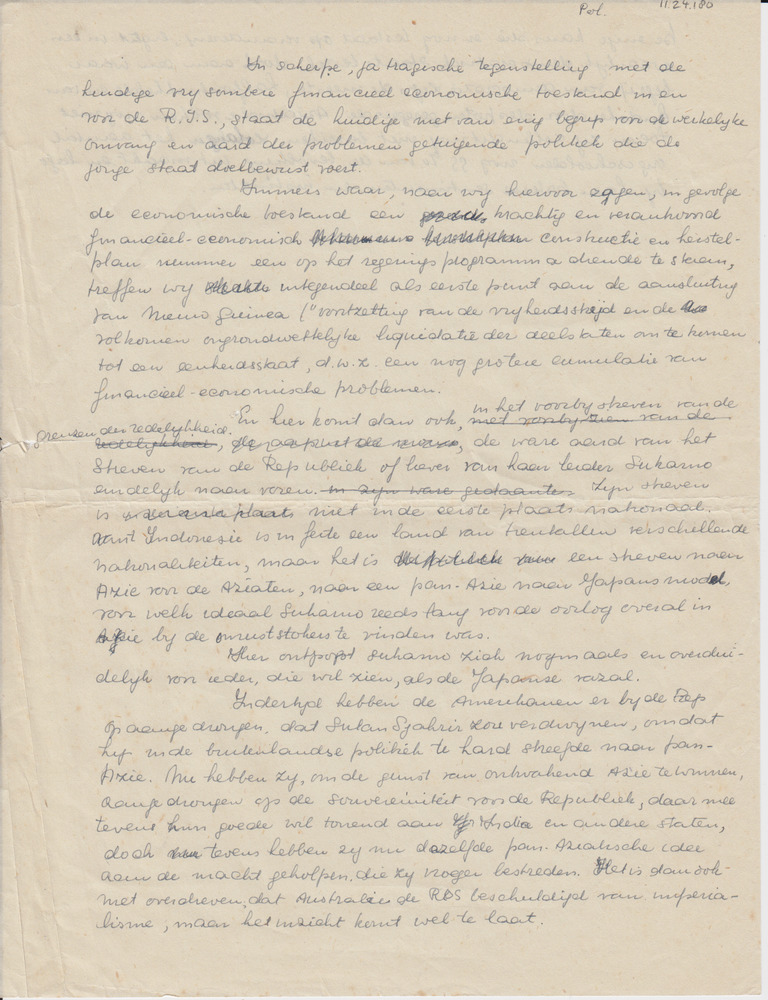 Pol.
11.24.180
In scherpe, ja tragische tegenstelling met de
huidige vrij sombere financieel economische toestand in en
voor de R.I.S., staat de huidige niet van enig begrip voor de werkelyke
omvang en aard der problemen getuigende politiek die de
jonge staat doelbewust voert.
Immers waar, naar wy hiervoor zagen, in gevolge
de economische toestand een krachtig en verantwoord
financieel-economisch constructie en herstel-
plan nummer een op het regerings programma diende te staan,
treffen wy integendeel als eerste punt aan de aansluiting
van Nieuw Guinea ("voortzetting van de vryheidsstryd en de
volkomen ongrondwettelyke liquidatie der deelstaten om te komen
tot een eenheidsstaat, d.w.z. een nog grotere cumulatie van
financieel-economische problemen.
in het voorby streven van de
En hier komt dan ook, met voorbyzien van de
grenzen der redelykheid.
redelykheid, de ware aard van het
streven van de Republiek of liever van haar leider Sukarno
eindelyk naar voren. in zyn ware gedaante. Zyn streven
is niet in de eerste plaats nationaal.
want Indonesie is in feite een land van tientallen verschillende
nationaliteiten, maar het is een streven naar
Azie voor de Aziaten, naar een pan-Azie naar Japans model,
voor welk ideaal Sukarno reeds lang voor de oorlog overal in
Azie by de onruststokers te vinden was.
Hier ontpopt Sukarno zich nogmaals en overdui-
delyk voor ieder, die wil zien, als de Japanse vazal.
Indertyd hebben de Amerikanen er by de Rep
op aangedrongen, dat Sutan Sjahrir zou verdwynen, omdat
hy in de buitenlandse politiek te hard streefde naar pan-
Azie. Nu hebben zy, om de gunst van ontwakend Azie te winnen,
aangedrongen op de souvereiniteit voor de Republiek, daarmee
tevens hun goede wil tonend aan India en andere staten,
doch tevens hebben zy nu dezelfde pan-Aziatische idee
aan de macht geholpen, die zy vroeger bestreden. Het is dan ook
niet overdreven, dat Australie de RIS beschuldigd van imperia-
lisme, maar het inzicht komt wel te laat.